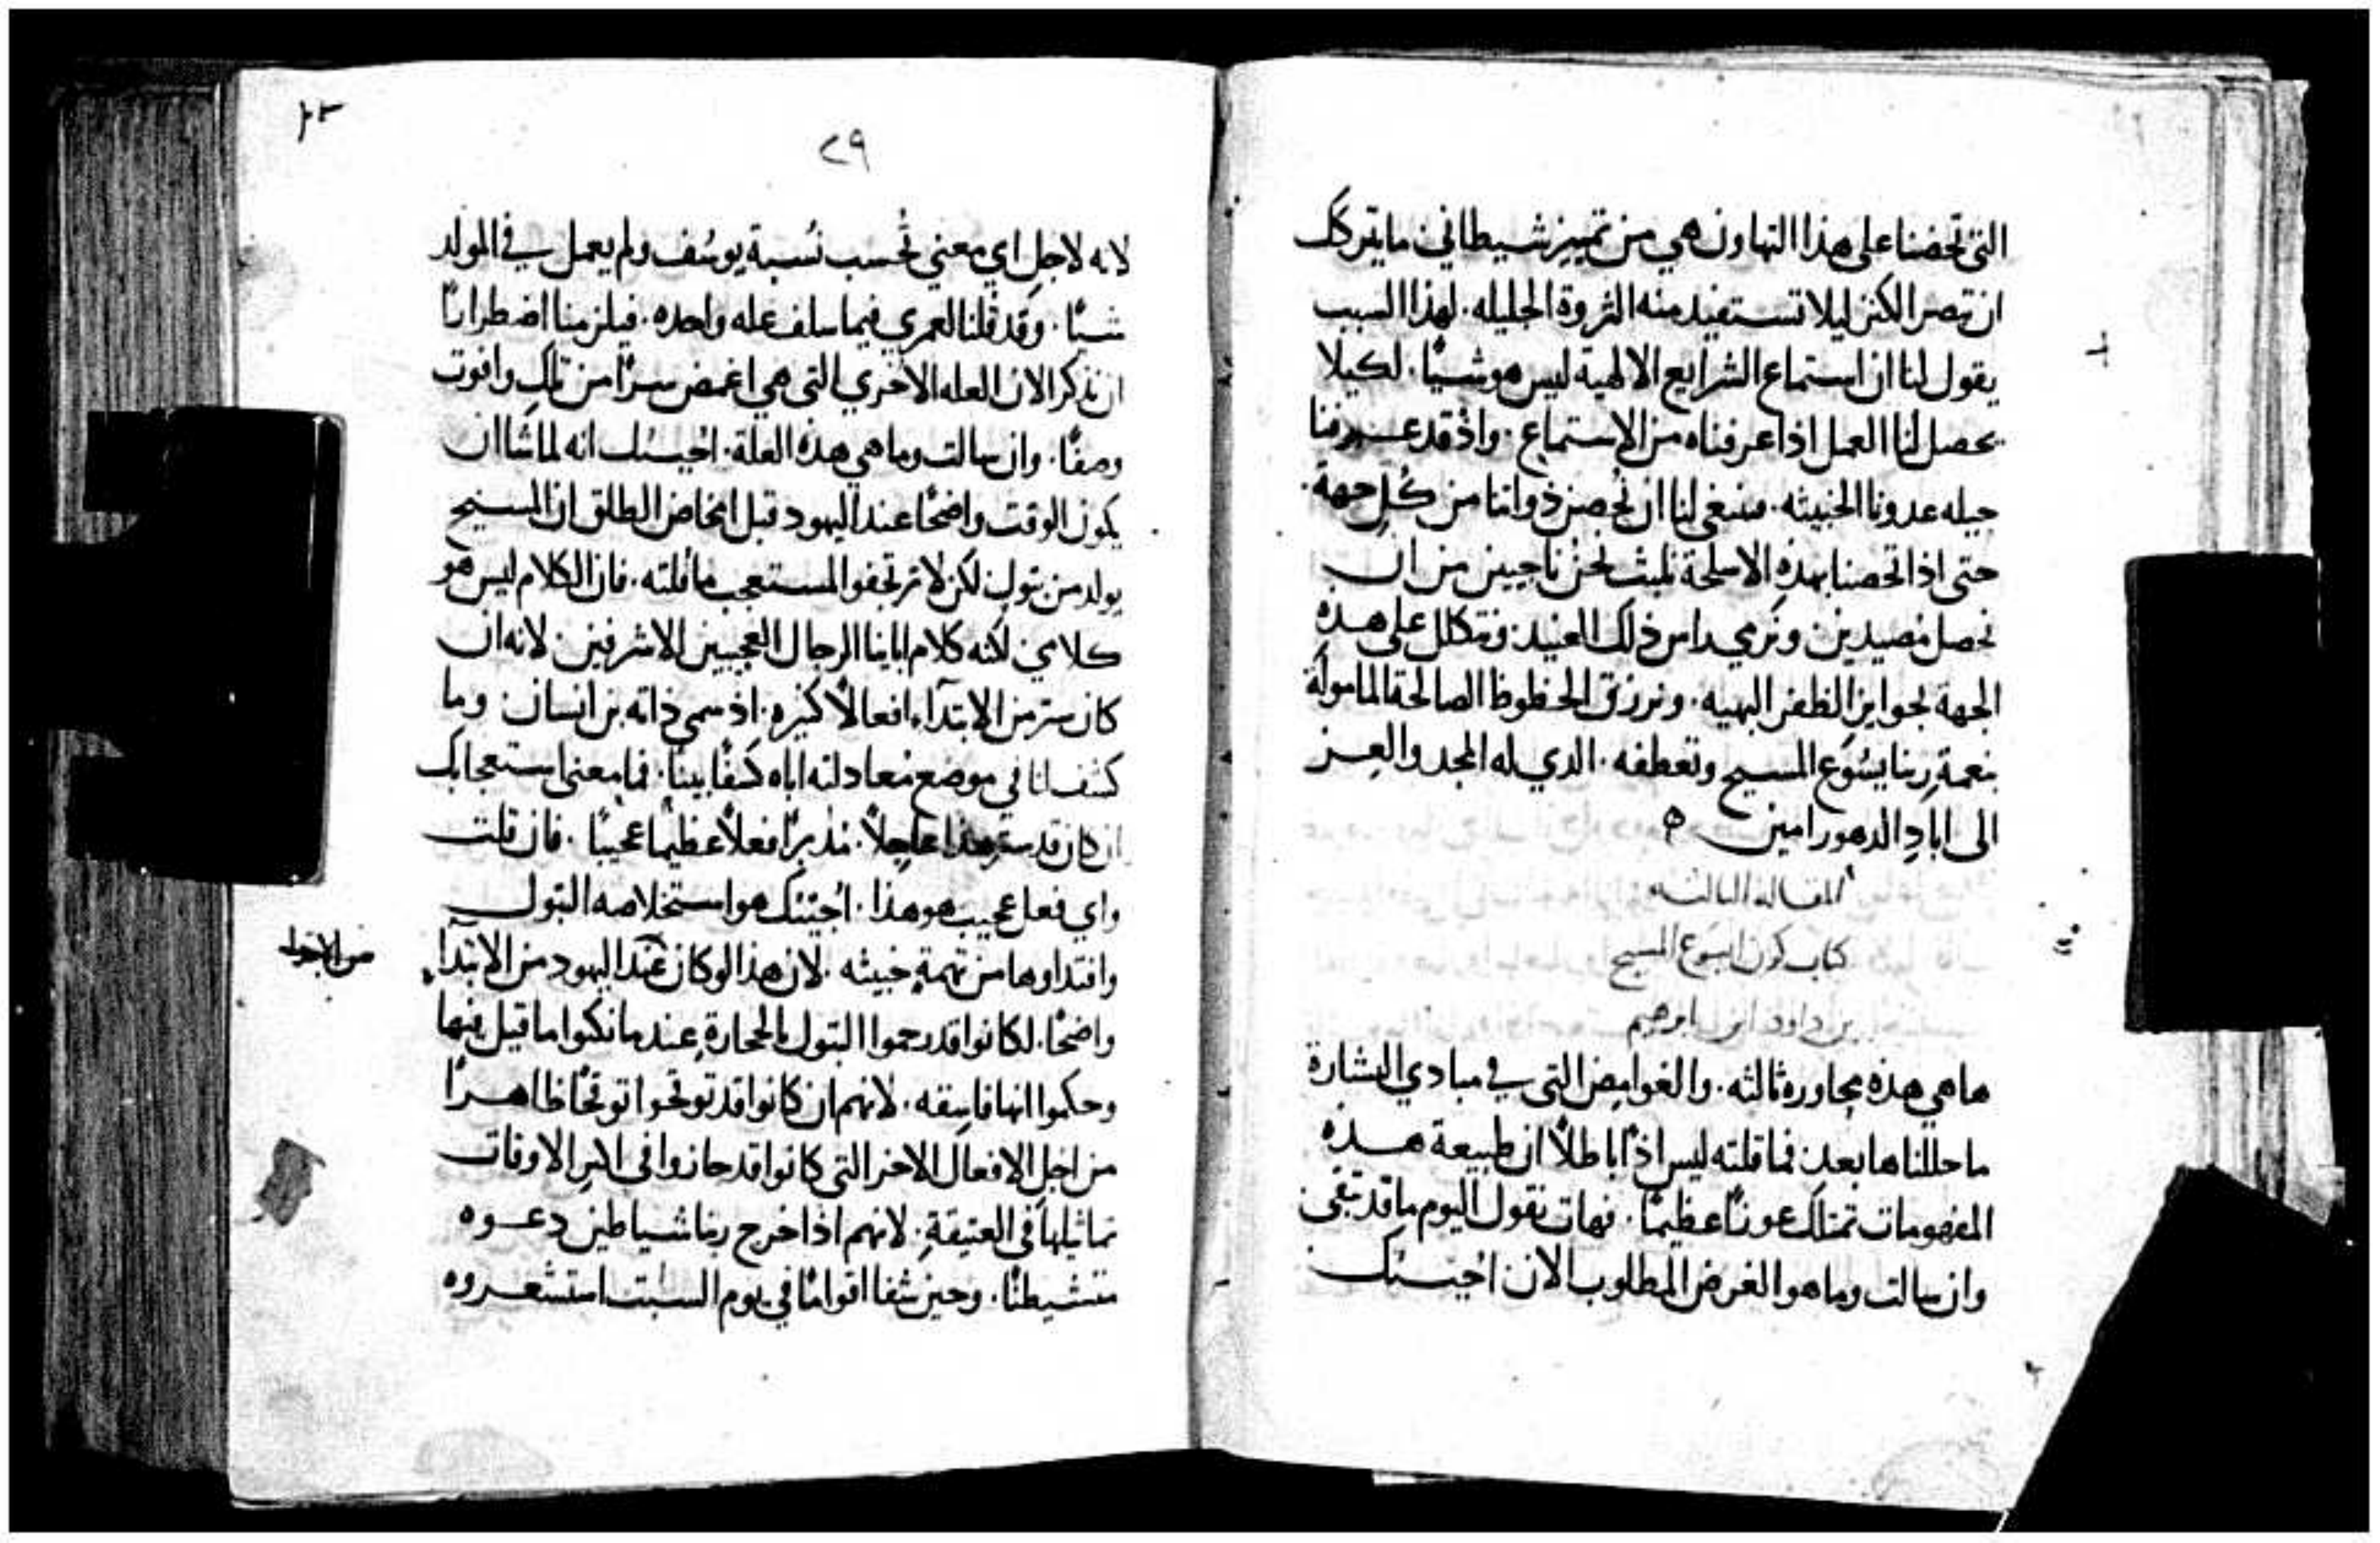 التي تحضنا على هذا التهاون هي من تمييز شيطاني ما يتركك
ان تبصر الكنز ليلا تستفيد منه الثروة الجليله. لهذا السبب
يقول لنا ان استماع الشرايع الالهية ليس هو شيًا. لكيلا
يحصل لنا العمل اذا عرفناه من الاستماع. واذ قد عرفنا
حيله عدونا الخبيثه. فينبغي لنا ان نحصن ذواتنا من كل جهة.
حتى اذا تحصنا بهذه الاسلحة نلبث نحن ناجيين من ان
نحصل مصيدين ونرمي راس ذلك العنيد. ونتكلل على هذه
الجهة بجوايز الظفر البهيه. ونرزق الحظوظ الصالحة المامولة
بنعمة ربنا يسوع المسيح وتعطفه. الدي له المجد والعز
الى اباد الدهور امين ه
المقاله الثالثه
كتاب كون ايسوع المسيح
بن داود ابن ابرهيم
ها هي هذه محاوره ثالثه. والغوامض التي في مبادي البشارة
ما حللناها بعد. فما قلته ليس اذًا باطلًا ان طبيعة هذه
المفهومات تمتلك عونًا عظيمًا. فهات نقول اليوم ما قد تبقى
وان سالت وما هو الغرض المطلوب الان اجيبك
٢٩
لانه لاجل اي معني تحسب نسبة يوسف ولم يعمل في المولد
شيًا. وقد قلنا لعمري فيما سلف عله واحده. فيلزمنا اضطرارًا
ان نذكر الان العله الاخري التي هي اغمض سرًا من تلك وافوت
وصفًا. وان سالت وما هي هذه العلة. اجيبك انه لما شاان
يكون الوقت واضحًا عند اليهود قبل المخاض الطلق ان المسيح
يولد من بتول. لكن لا ترتجفوا المستعجب ما قلته. فان الكلام ليس هو
كلامي لكنه كلام اباينا الرجال العجيبين الاشرفين. لانه ان
كان ستر من الابتداء افعالًا كثيره. اذ سمي ذاته بن انسان وما
كشف لنا في موضع معادلته اباه كشفًا بينًا. فما معنى استعجابك
ان كان قد ستر هذا عاجلًا. مدبرًا فعلًا عظيمًا عجيبًا. فان قلت
واي فعل عجيب هو هذا. اجبتك هو استخلاصه البتول
وافتداوها من تهمة خبيثه. لان هذا لو كان عند اليهود من الابتداء
واضحًا. لكانوا قد رجموا البتول بالحجارة عند ما نكبوا ما قيل فيها
وحكموا انها فاسقه. لانهم ان كانوا قد توقحوا توقحًا ظاهرًا
من اجل الافعال الاخر التي كانوا قد حازوا في اكثر الاوقات
تماثيلها في العتيقة. لانهم اذ اخرج ربنا شياطين دعوه
متشيطنًا. وحين شفا اقوامًا في يوم السبت استشعروه